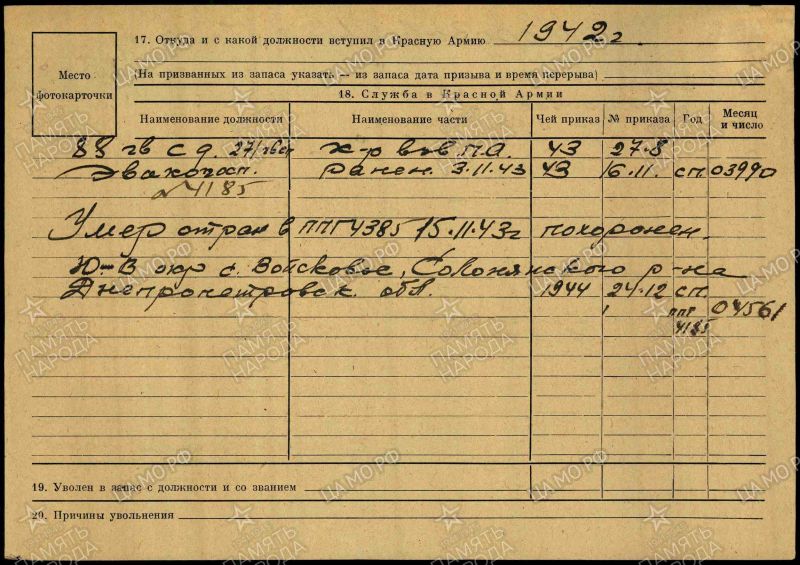 17. Откуда и с какой должности вступил в Красную Армию 1942 г
(На призванных из запаса указать — из запаса дата призыва и время перерыва)
Место фотокарточки
18. Служба в Красной Армии
Наименование должности Наименование части Чей приказ № приказа Год Месяц и число
88 гв с д. 27/ к-р взв. П.А. 43 27.8
Эвакогосп. ранен 3.11.43 43 16.11. сп. 03990
№4185
Умер от ран в ППГ 4385 15.11.43г похоронен.
Ю-В окр с. Войсковое, Солонянского р-на
Днепропетровск. обл. 1944 24.12 сп. 04561
ППГ
4185
19. Уволен в запас с должности и со званием
20. Причины увольнения
ПАМЯТЬ НАРОДА
ЦАМО.РФ